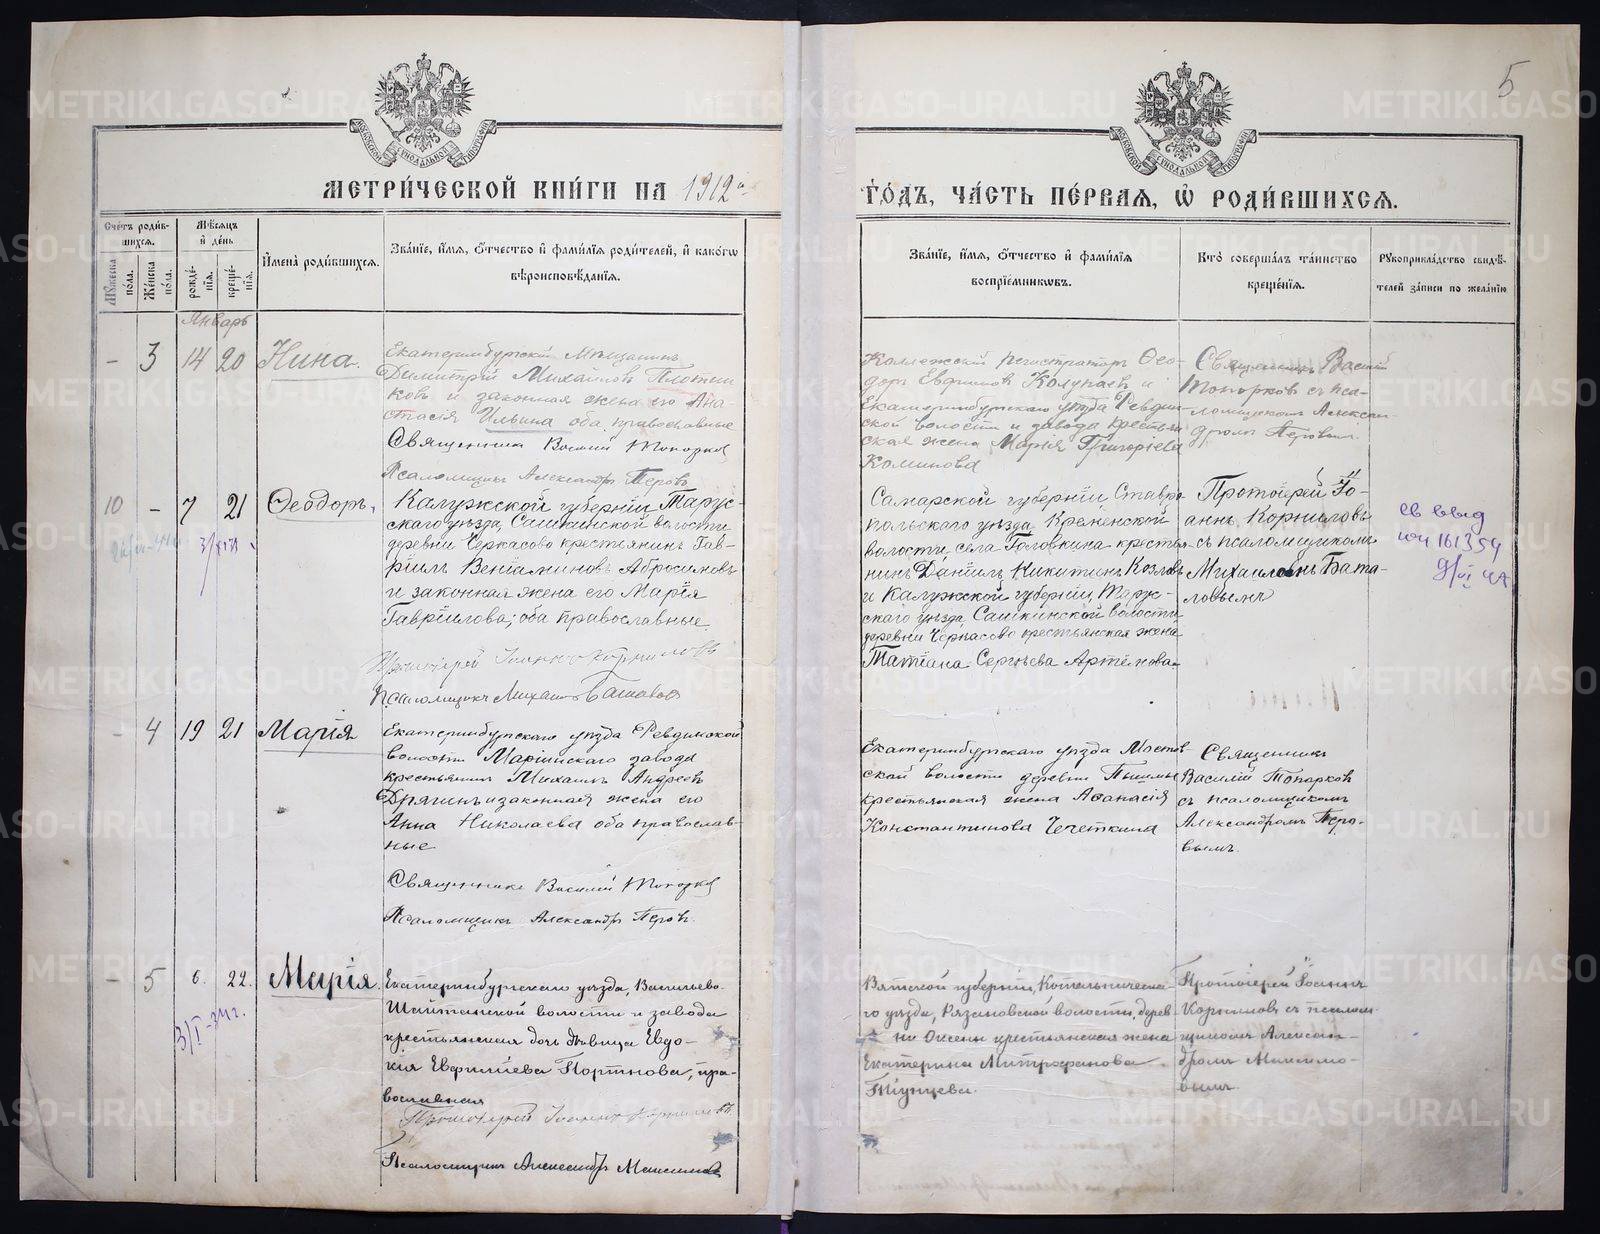 5
МОСКОВСКОЙ СѴНОДАЛЬНОЙ ТИПОГРАФІИ
МОСКОВСКОЙ СѴНОДАЛЬНОЙ ТИПОГРАФІИ
МЕТРИ́ЧЕСКОЙ КНИ́ГИ НА 1912й
ГО́ДЪ, ЧА́СТЬ ПЕ́РВАЯ, Ѡ҆ РОДИ́ВШИХСЯ.
Сче́тъ роди́в-
шихся.
Мѣ́сяцъ
и҆ де́нь
Му́жеска
по́ла.
Же́нска
по́ла.
рожде́-
нія.
креще́-
нія.
И҆мена̀ роди́вшихся.
Зва́ніе, и҆́мя, ѻ҆́тчество и҆ фами́лія роди́телей, и҆ како́гѡ
вѣроисповѣ́данія.
Зва́ніе, и҆́мя, ѻ҆́тчество и҆ фами́лія
воспріе́мникѡвъ.
Кто̀ соверша́лъ та́инство
креще́нія.
Рꙋкоприкла́дство свидѣ́-
телей за́писи по жела́нію
Январь
- 3 14 20 Нина.
Екатеринбургскій Мѣщанинъ
Димитрій Михайловъ Плотни
ковъ и законная жена его Ана-
стасія Ильина оба православные
Священникъ Василій Топорковъ
Псаломщикъ Александръ Перовъ
Коллежскій регистраторъ Ѳео-
доръ Евфимовъ Колупаевъ и
Екатеринбургскаго уѣзда Ревдин-
ской волости и завода крестьян
ская жена Марія Григоріева
Коминова
Священникъ Василій
Топорковъ съ пса-
ломщикомъ Алексан-
дромъ Перовымъ.
10 - 7 21 Ѳеодоръ.
Калужской губерніи Тарус-
скаго уѣзда, Сашкинской волости
деревни Черкасово крестьянинъ Гав-
ріилъ Веніаминовъ Абросимовъ
и законная жена его Марія
Гавріилова; оба православные
Протоіерей Іоаннъ Корниловъ
Псаломщикъ Михаилъ Баталовъ
Самарской губерніи Ставро
польскаго уѣзда, Кременской
волости, села Головкина крестья-
нинъ Даніилъ Никитинъ Козловъ
и Калужской губерніи, Тарус-
скаго уѣзда, Сашкинской волости
деревни Черкасово крестьянская жена
Татіана Сергѣева Артёмова
Протоіерей Іо-
аннъ Корниловъ
съ псаломщикомъ
Михаиломъ Бата-
ловымъ
св выд
161354
- 4 19 21 Марія
Екатеринбургскаго уѣзда Ревдинской
волости Маріинскаго завода
крестьянинъ Михаилъ Андреевъ
Дрягинъ и законная жена его
Анна Николаева оба православ-
ные
Священникъ Василій Топорковъ
Псаломщикъ Александръ Перовъ.
Екатеринбургскаго уѣзда Мостов-
ской волости деревни Пышмы
крестьянская жена Аѳанасія
Константинова Чечеткина
Священникъ
Василій Топорковъ
съ псаломщикомъ
Александромъ Перо-
вымъ.
- 5 6. 22. Марія.
3/I-34г.
Екатеринбургскаго уѣзда, Васильево-
Шайтанской волости и завода
крестьянская дочь дѣвица Евдо-
кія Евфиміева Портнова, пра-
вославная
Протоіерей Іоаннъ Корниловъ
Псаломщикъ Александръ Максимовъ
Вятской губерніи, Котельническа-
го уѣзда, Рязановской волости, дерев
крестьянская жена
Екатерина Митрофанова
Тіунцева.
Протоіерей Іоаннъ
Корниловъ съ псалом-
щикомъ Алексан-
дромъ Максимо-
вымъ.
METRIKI.GASO-URAL.RU